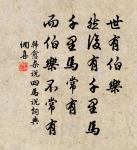 世有伯樂
然後有千里馬
千里馬常有
而伯樂不常有
韓愈雜說四馬說詞典
網